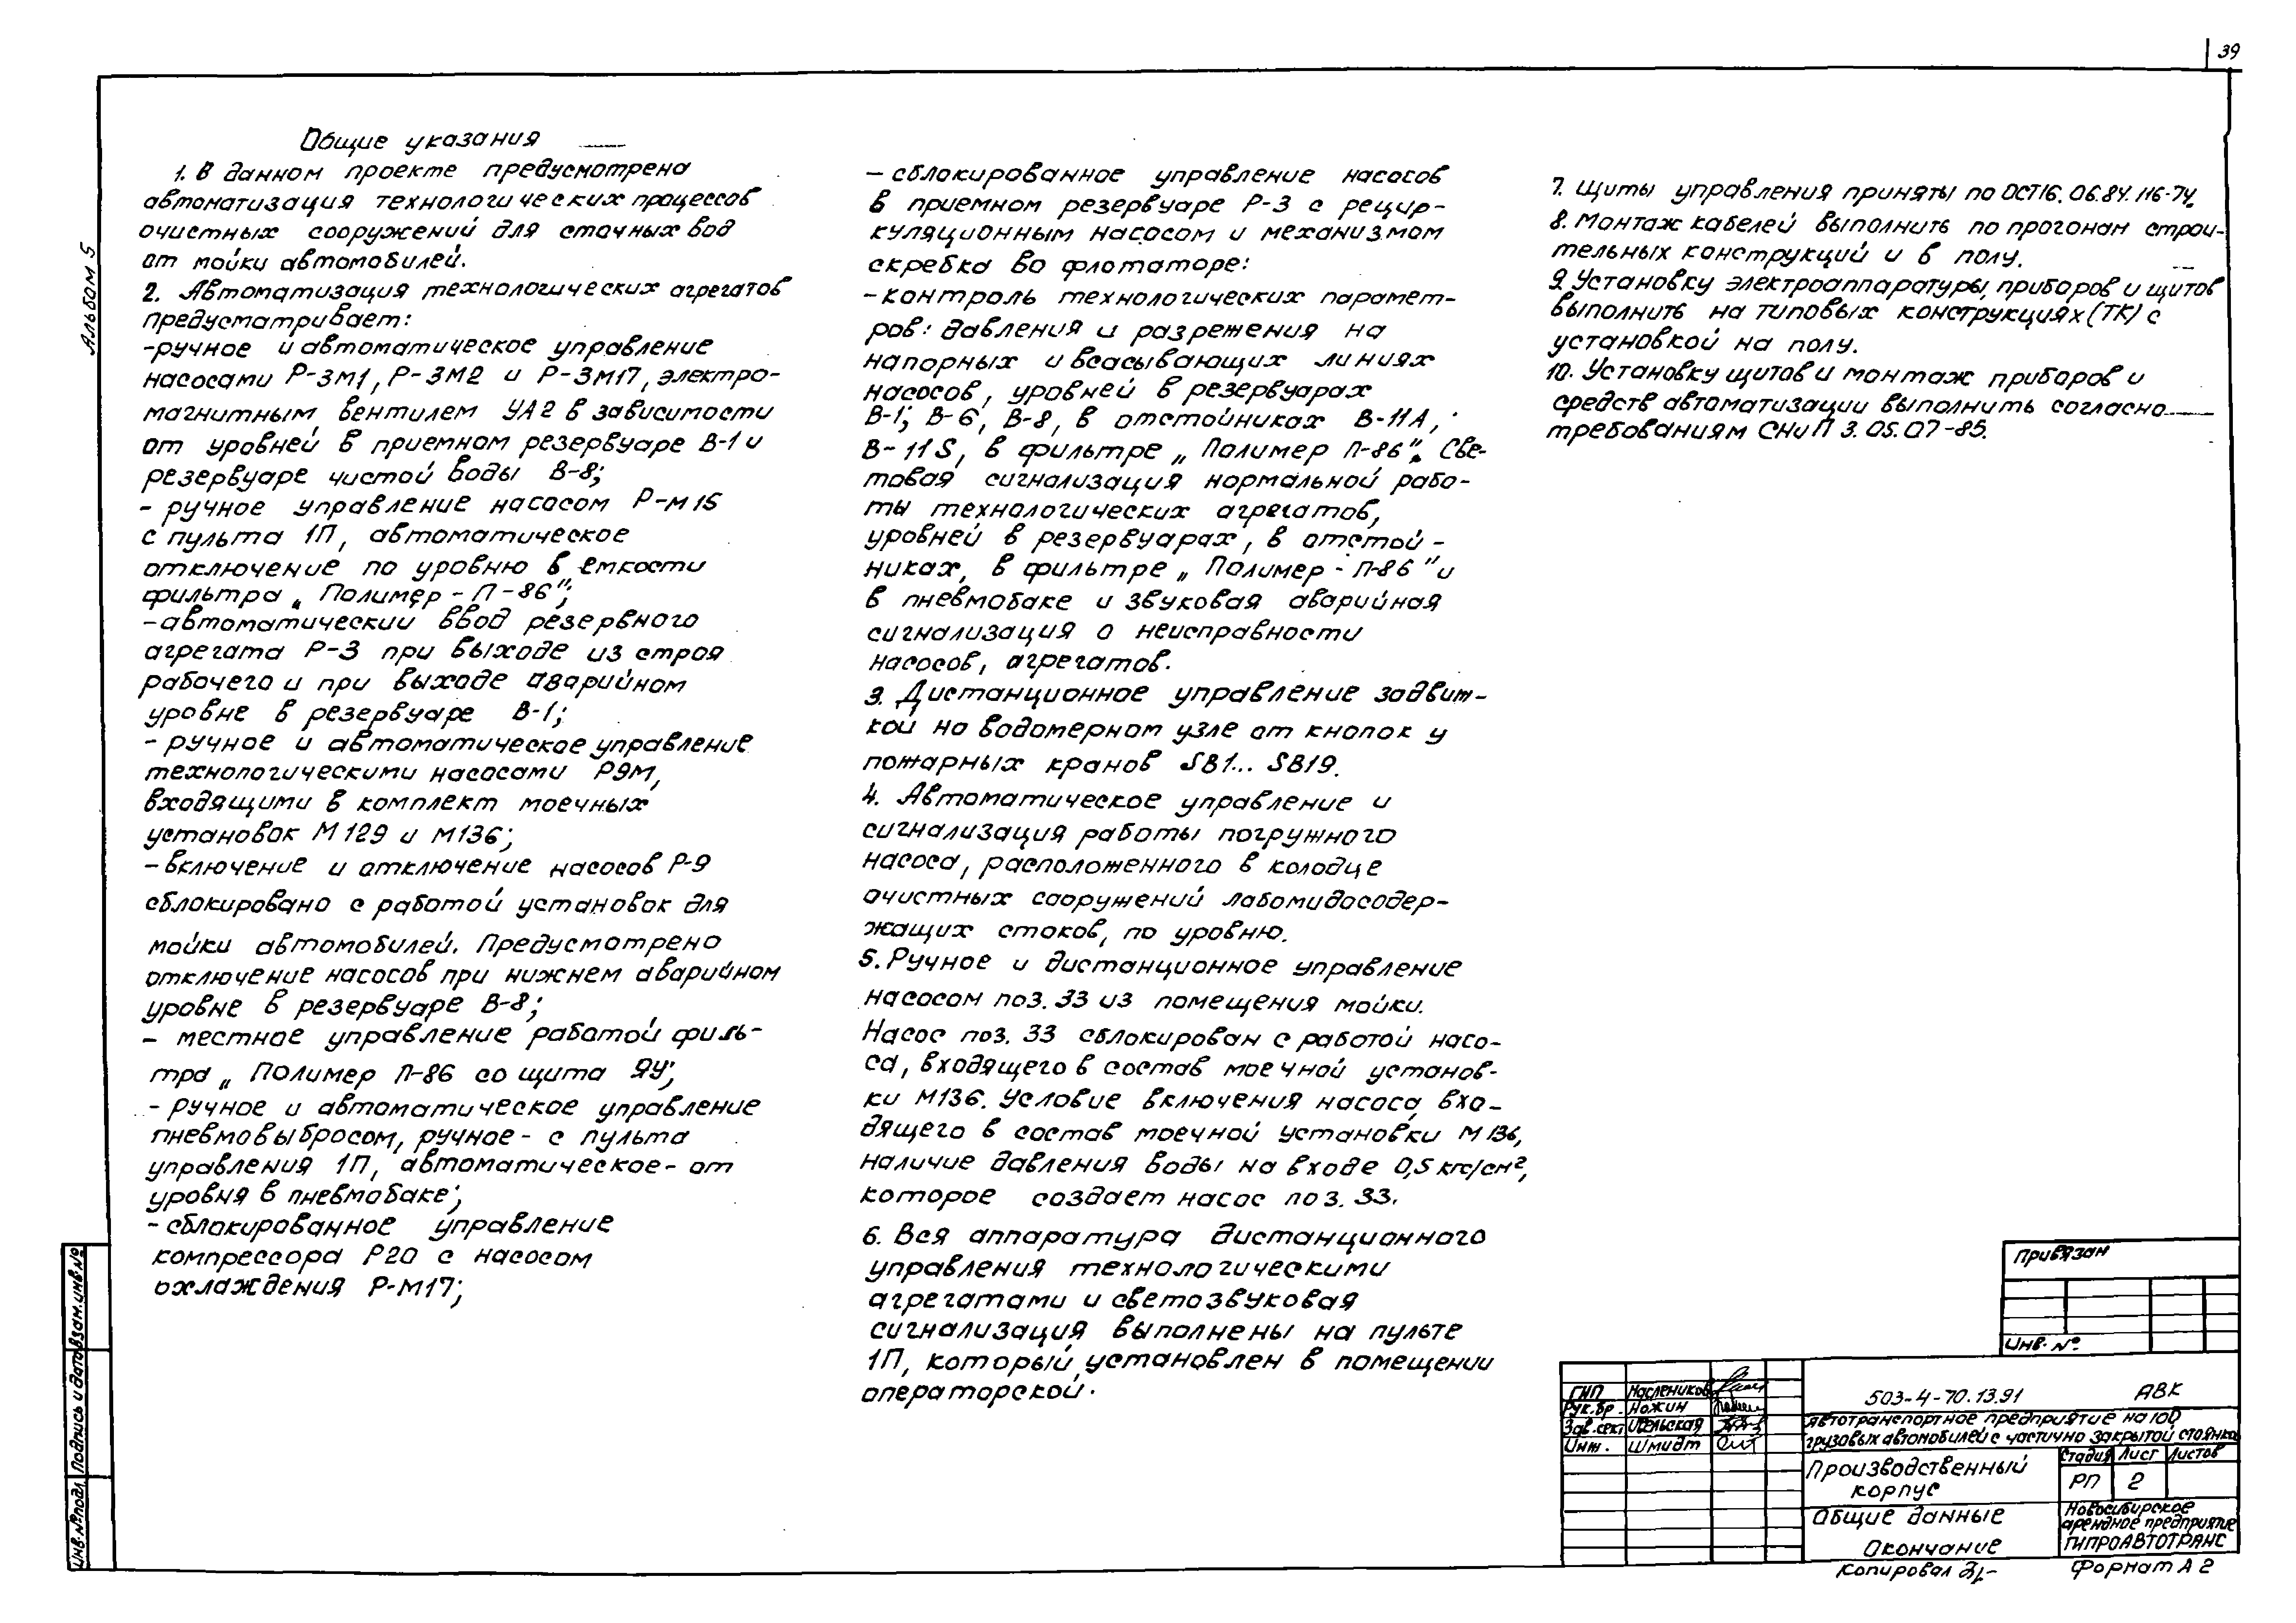 39
Альбом 5
Общие указания
1. В данном проекте предусмотрена
автоматизация технологических процессов
очистных сооружений для сточных вод
от мойки автомобилей.
2. Автоматизация технологических агрегатов
предусматривает:
-ручное и автоматическое управление
насосами Р-3М1, Р-3М2 и Р-3М17, электро-
магнитным вентилем УА2 в зависимости
от уровней в приемном резервуаре В-1 и
резервуаре чистой воды В-8;
- ручное управление насосом Р-М15
с пульта 1П, автоматическое
отключение по уровню в емкости
фильтра „Полимер - П-86";
-автоматический ввод резервного
агрегата Р-3 при выходе из строя
рабочего и при выходе аварийном
уровне в резервуаре В-1;
- ручное и автоматическое управление
технологическими насосами Р9М,
входящими в комплект моечных
установок М129 и М136;
-включение и отключение насосов Р-9
сблокировано с работой установок для
мойки автомобилей. Предусмотрено
отключение насосов при нижнем аварийном
уровне в резервуаре В-8;
- местное управление работой филь-
тра „ Полимер П-86 со щита ЯУ;
- ручное и автоматическое управление
пневмовыбросом, ручное - с пульта
управления 1П, автоматическое - от
уровня в пневмобаке;
- сблокированное управление
компрессора Р20 с насосом
охлаждения Р-М17;
- сблокированное управление насосов
в приемном резервуаре Р-3 с рецир-
куляционным насосом и механизмом
скребка во флотаторе:
-контроль технологических парамет-
ров: давления и разрежения на
напорных и всасывающих линиях
насосов, уровней в резервуарах
В-1; В-6, В-8, в отстойниках В-11А,
В-11Б, в фильтре „ Полимер П-86". Све-
товая сигнализация нормальной рабо-
ты технологических агрегатов,
уровней в резервуарах, в отстой-
никах, в фильтре „ Полимер - П-86" и
в пневмобаке и звуковая аварийная
сигнализация о неисправности
насосов, агрегатов.
3. Дистанционное управление задвиж-
кой на водомерном узле от кнопок у
пожарных кранов SB1... SB19.
4. Автоматическое управление и
сигнализация работы погружного
насоса, расположенного в колодце
очистных сооружений лабомидосодер-
жащих стоков, по уровню.
5. Ручное и дистанционное управление
насосом поз. 33 из помещения мойки.
Насос поз. 33 сблокирован с работой насо-
са, входящего в состав моечной установ-
ки М136. Условие включения насоса, вхо-
дящего в состав моечной установки М136,
наличие давления воды на входе 0,5 кгс/см²,
которое создает насос поз. 33.
6. Вся аппаратура дистанционного
управления технологическими
агрегатами и светозвуковая
сигнализация выполнены на пульте
1П, который установлен в помещении
операторской.
7. Щиты управления приняты по ОСТ16. 06.84. 116-74.
8. Монтаж кабелей выполнить по прогонам строи-
тельных конструкций и в полу.
9. Установку электроаппаратуры, приборов и щитов
выполнить на типовых конструкциях (ТК) с
установкой на полу.
10. Установку щитов и монтаж приборов и
средств автоматизации выполнить согласно
требованиям СНиП 3. 05. 07-85.
Привязан
Инв. №
ГИП Маслеников
Рук. бр. Ножин
Зав. сект
Инж. Шмидт
503-4-70.13.91 АВК
Автотранспортное предприятие на 100
грузовых автомобилей с частично закрытой стоянкой
Производственный
корпус
Стадия Лист Листов
РП 2
Общие данные
Окончание
Новосибирское
арендное предприятие
ГИПРОАВТОТРАНС
Копировал
Формат А2
Инв. № подл. Подпись и дата Взам. инв. №